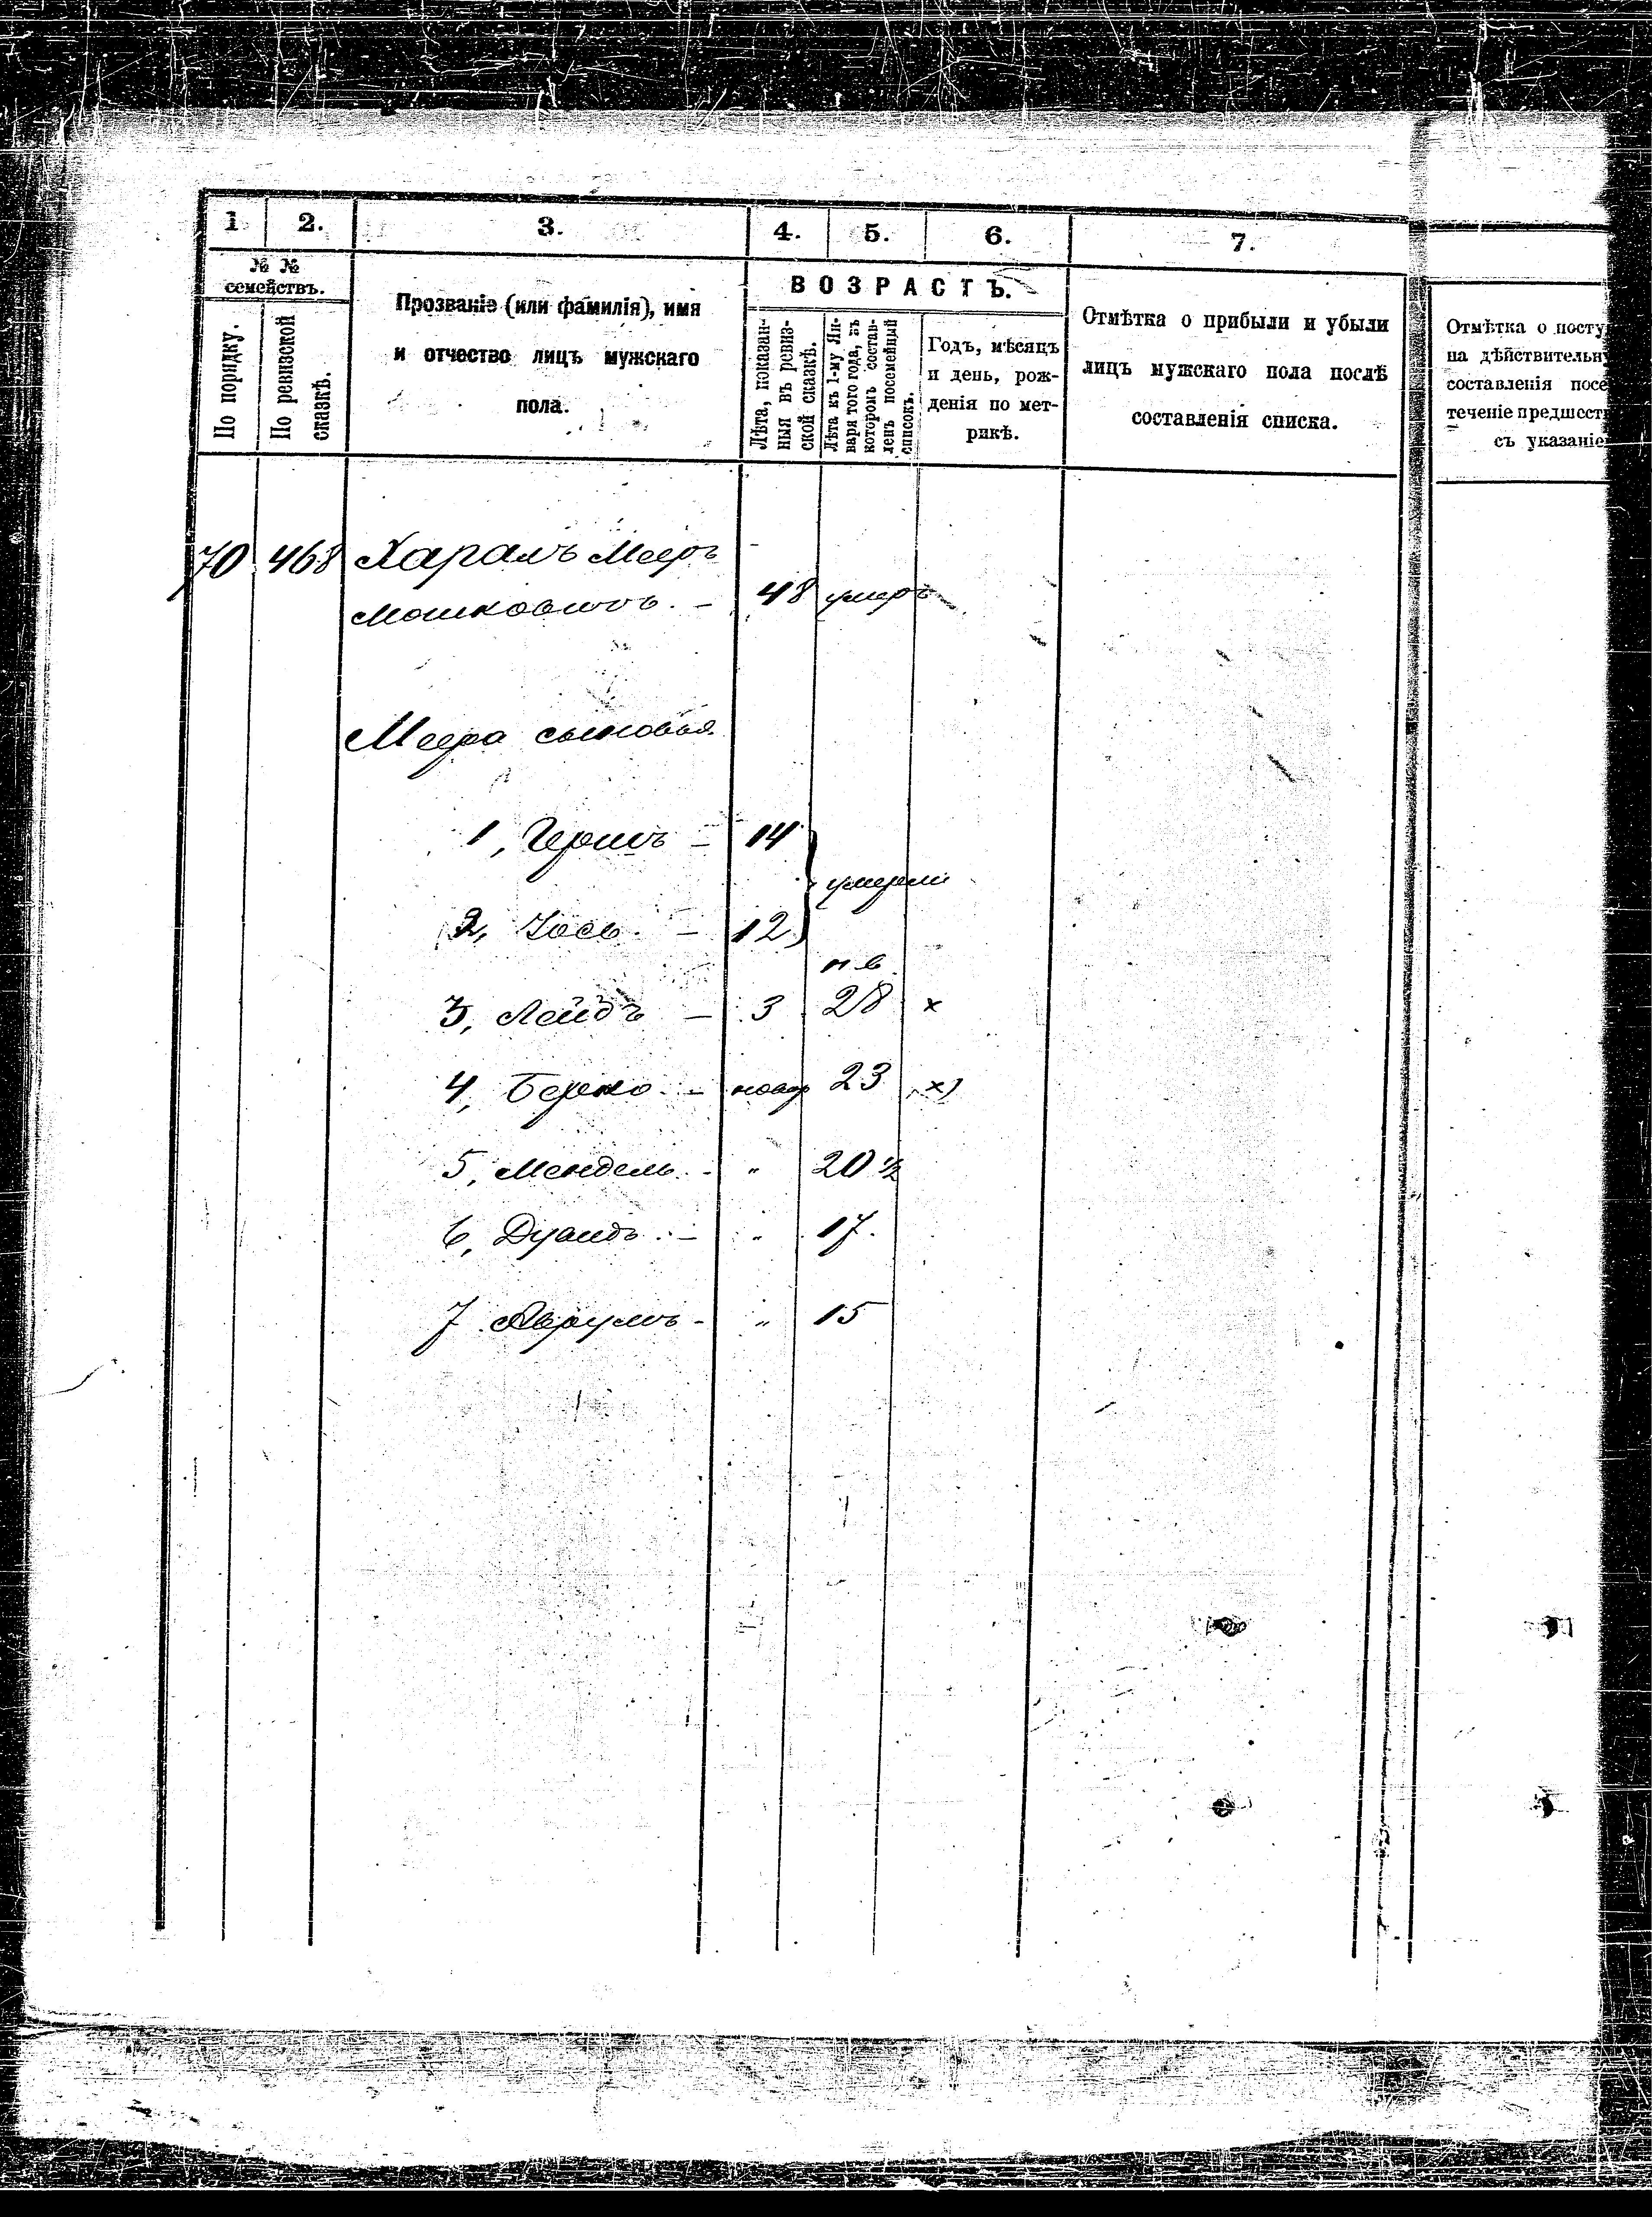 1 2. 3. 4. 5. 6. 7.
№ №
семействъ.
По порядку.
По ревизской
сказкѣ.
Прозваніе (или фамилія), имя
и отчество лицъ мужскаго
пола.
ВОЗРАСТЪ.
Лѣта, показан-
ныя въ ревиз-
ской сказкѣ.
Лѣта къ 1-му Ян-
варя того года, въ
которомъ состав-
ленъ посемейный
списокъ.
Годъ, мѣсяцъ
и день, рож-
денія по мет-
рикѣ.
Отмѣтка о прибыли и убыли
лицъ мужскаго пола послѣ
составленія списка.
Отмѣтка о посту
на дѣйствительн
составленія посе
теченіе предшест
съ указаніе
70 468 Харалъ Мееръ
Мошковичъ. — 48 умеръ
Меера сыновья
1, Гершъ — 14
умерли
2, Іось. — 12
н в
3, Лейбъ — 3 28 х
4, Берко. — новор 23 х)
5, Мендель. - " 20 ½
6, Дувидъ. — " 17.
7 Аврумъ - " 15